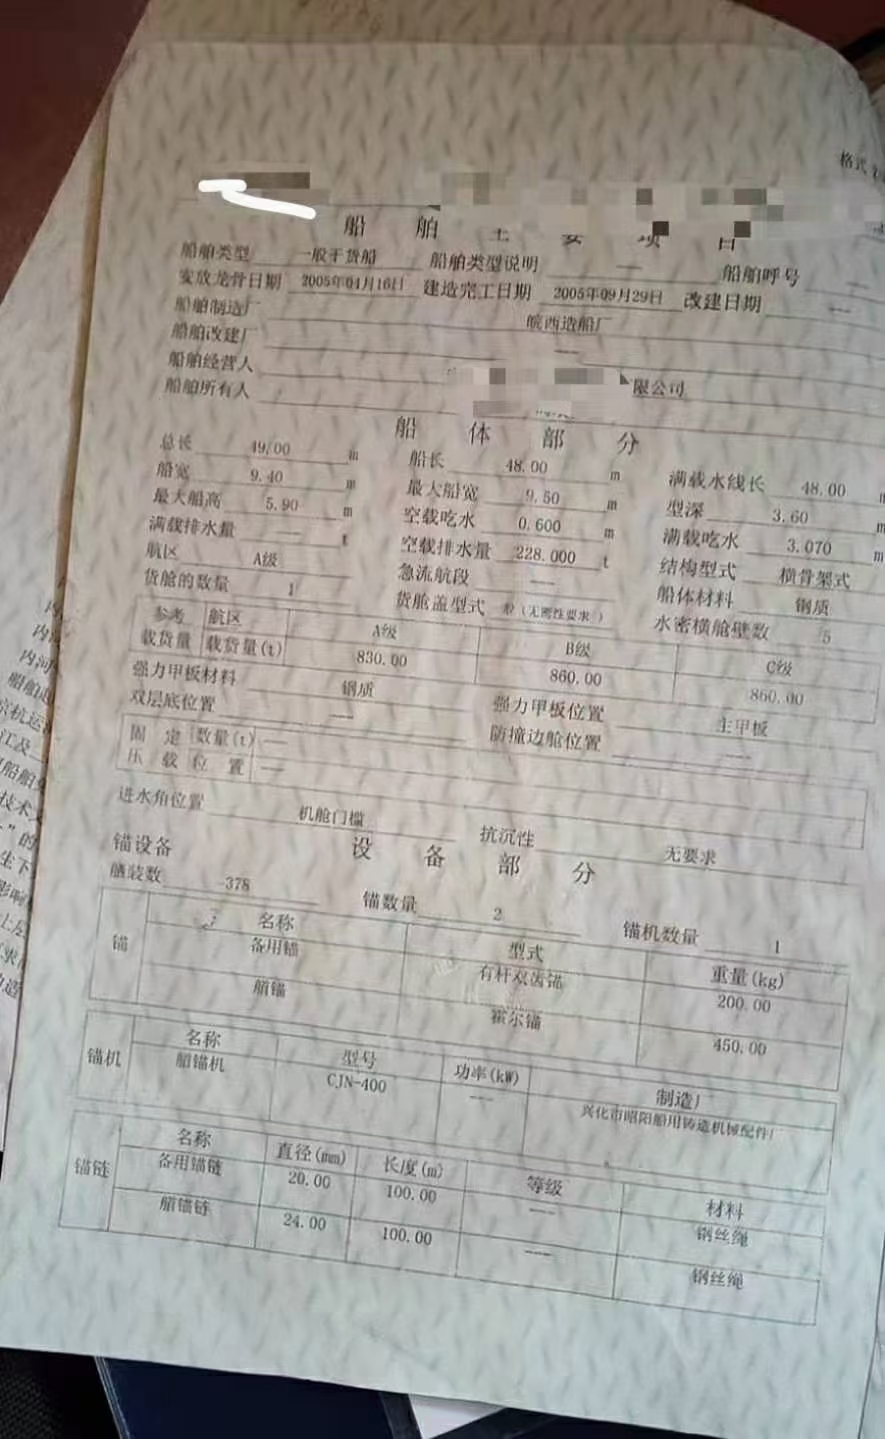 船舶主要项目
船舶类型 一般干货船 船舶类型说明 —— 船舶呼号 ——
安放龙骨日期 2005年04月16日 建造完工日期 2005年09月29日 改建日期 ——
船舶制造厂 皖西造船厂
船舶改建厂 ——
船舶经营人 限公司
船舶所有人
船体部分
总长 49.00 m 船长 48.00 m 满载水线长 48.00 m
船宽 9.40 m 最大船宽 9.50 m 型深 3.60 m
最大船高 5.90 m 空载吃水 0.600 m 满载吃水 3.070 m
满载排水量 —— t 空载排水量 228.000 t 结构型式 横骨架式
航区 A级 急流航段 —— 船体材料 钢质
货舱的数量 1 货舱盖型式 般(无密性要求) 水密横舱壁数 5
参考 航区 A级 B级 C级
载货量 载货量(t) 830.00 860.00 860.00
强力甲板材料 钢质 强力甲板位置 主甲板
双层底位置 —— 防撞边舱位置 ——
固定 数量(t) ——
压载 位置 ——
进水角位置 机舱门槛 抗沉性 无要求
设备部分
锚设备
舾装数 -378 锚数量 2 锚机数量 1
锚 名称 型式 重量(kg)
备用锚 有杆双齿锚 200.00
艏锚 霍尔锚 450.00
锚机 名称 型号 功率(kW) 制造厂
艏锚机 CJN-400 —— 兴化市昭阳船用铸造机械配件厂
锚链 名称 直径(mm) 长度(m) 等级 材料
备用锚链 20.00 100.00 —— 钢丝绳
艏锚链 24.00 100.00 —— 钢丝绳